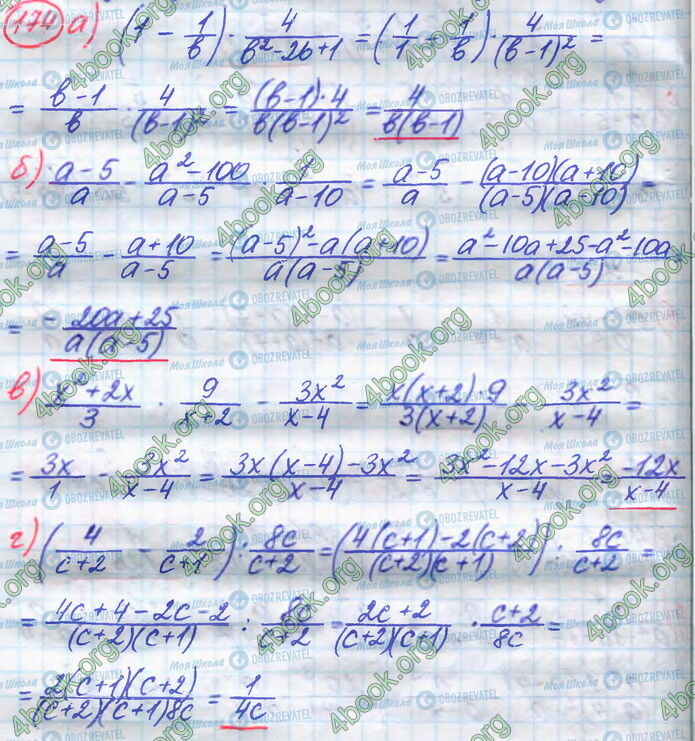 174 а) (1 - 1/в) · 4/(в² - 2в + 1) = (1/1 - 1/в) · 4/(в-1)² =
= (в-1)/в · 4/(в-1)² = (в-1)·4/в(в-1)² = 4/в(в-1)
б) (a-5)/a - (a²-100)/(a-5) · 1/(a-10) = (a-5)/a - (a-10)(a+10)/(a-5)(a-10) =
= (a-5)/a - (a+10)/(a-5) = ((a-5)² - a(a+10))/a(a-5) = (a²-10a+25-a²-10a)/a(a-5)
= (-20a+25)/a(a-5)
в) (x²+2x)/3 · 9/(x+2) - 3x²/(x-4) = x(x+2)·9/3(x+2) - 3x²/(x-4) =
= 3x/1 - 3x²/(x-4) = (3x(x-4)-3x²)/(x-4) = (3x²-12x-3x²)/(x-4) = -12x/(x-4)
г) (4/(c+2) - 2/(c+1)) : 8c/(c+2) = ((4(c+1)-2(c+2))/(c+2)(c+1)) : 8c/(c+2) =
= (4c+4-2c-2)/(c+2)(c+1) : 8c/(c+2) = (2c+2)/(c+2)(c+1) · (c+2)/8c =
= 2(c+1)(c+2)/(c+2)(c+1)8c = 1/4c
4book.org
Моя Школа
OBOZREVATEL